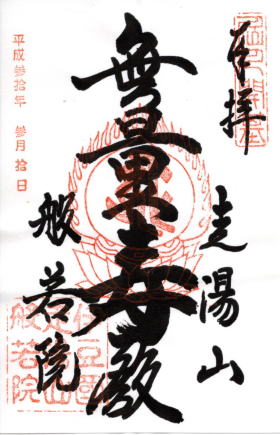 奉拝
走湯山
無量壽殿
般若院
平成参拾年 参月拾日
伊豆國
走湯山
般若院